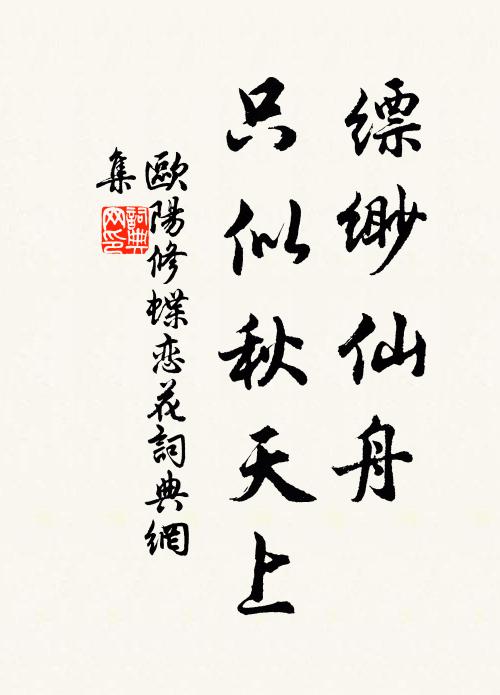 缥缈仙舟
只似秋天上
歐陽修蝶恋花詞典網
集
詞典
网印